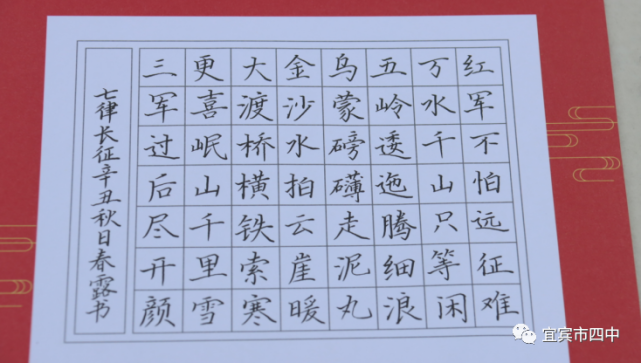 红军不怕远征难
万水千山只等闲
五岭逶迤腾细浪
乌蒙磅礴走泥丸
金沙水拍云崖暖
大渡桥横铁索寒
更喜岷山千里雪
三军过后尽开颜
七律长征辛丑秋日春露书
宜宾市四中